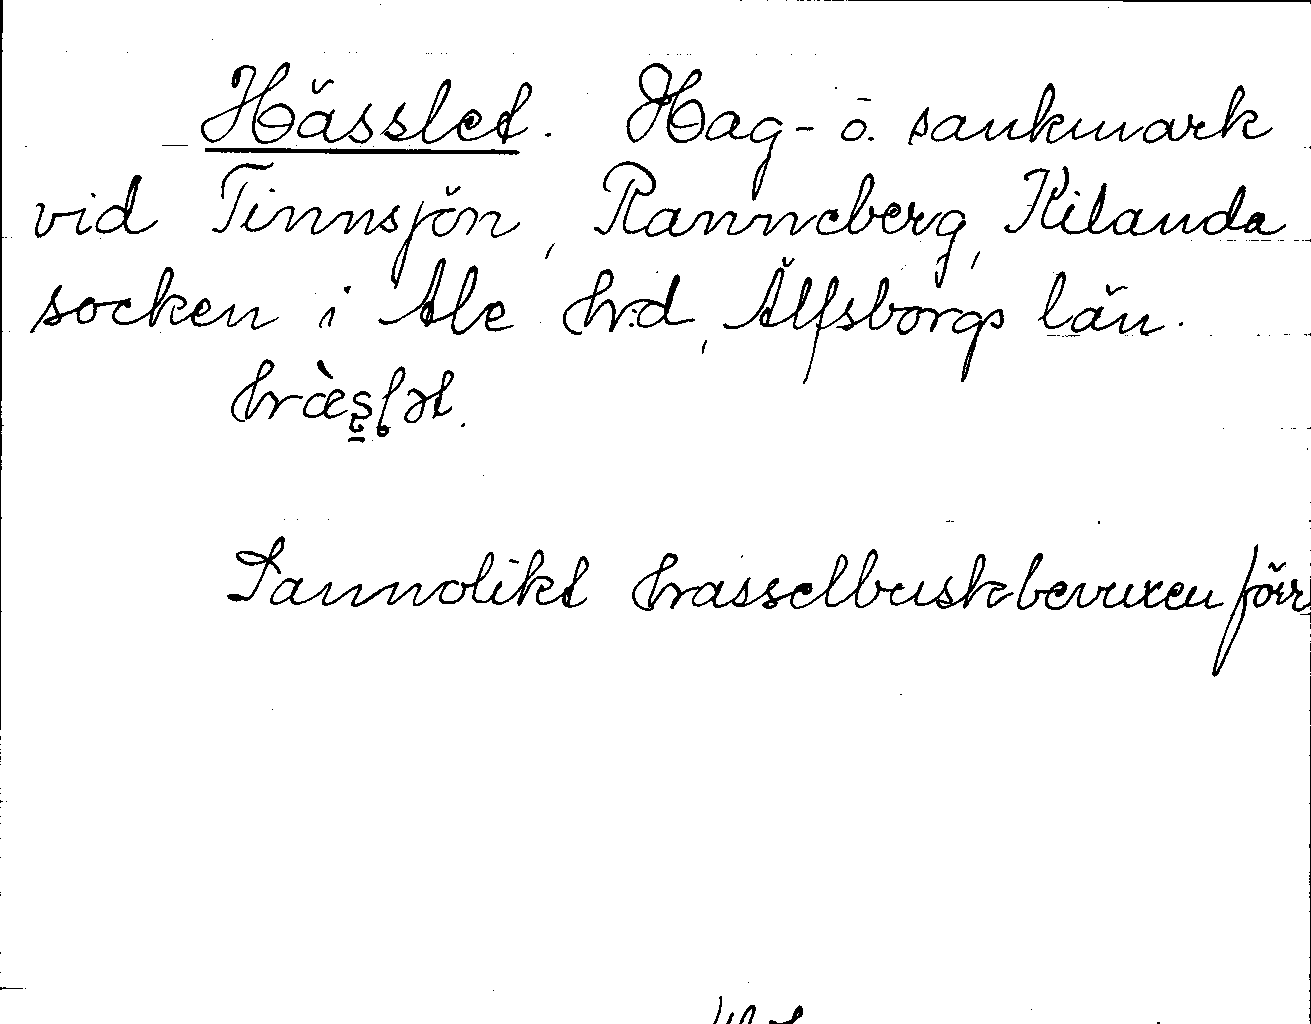 Hässlet. Hag- o. sankmark
vid Tinnsjön, Ranneberg, Kilanda
socken i Ale hrd, Älfsborgs län.
hæ̀s̠l̥ət.
Sannolikt hasselbuskbevuxen förr